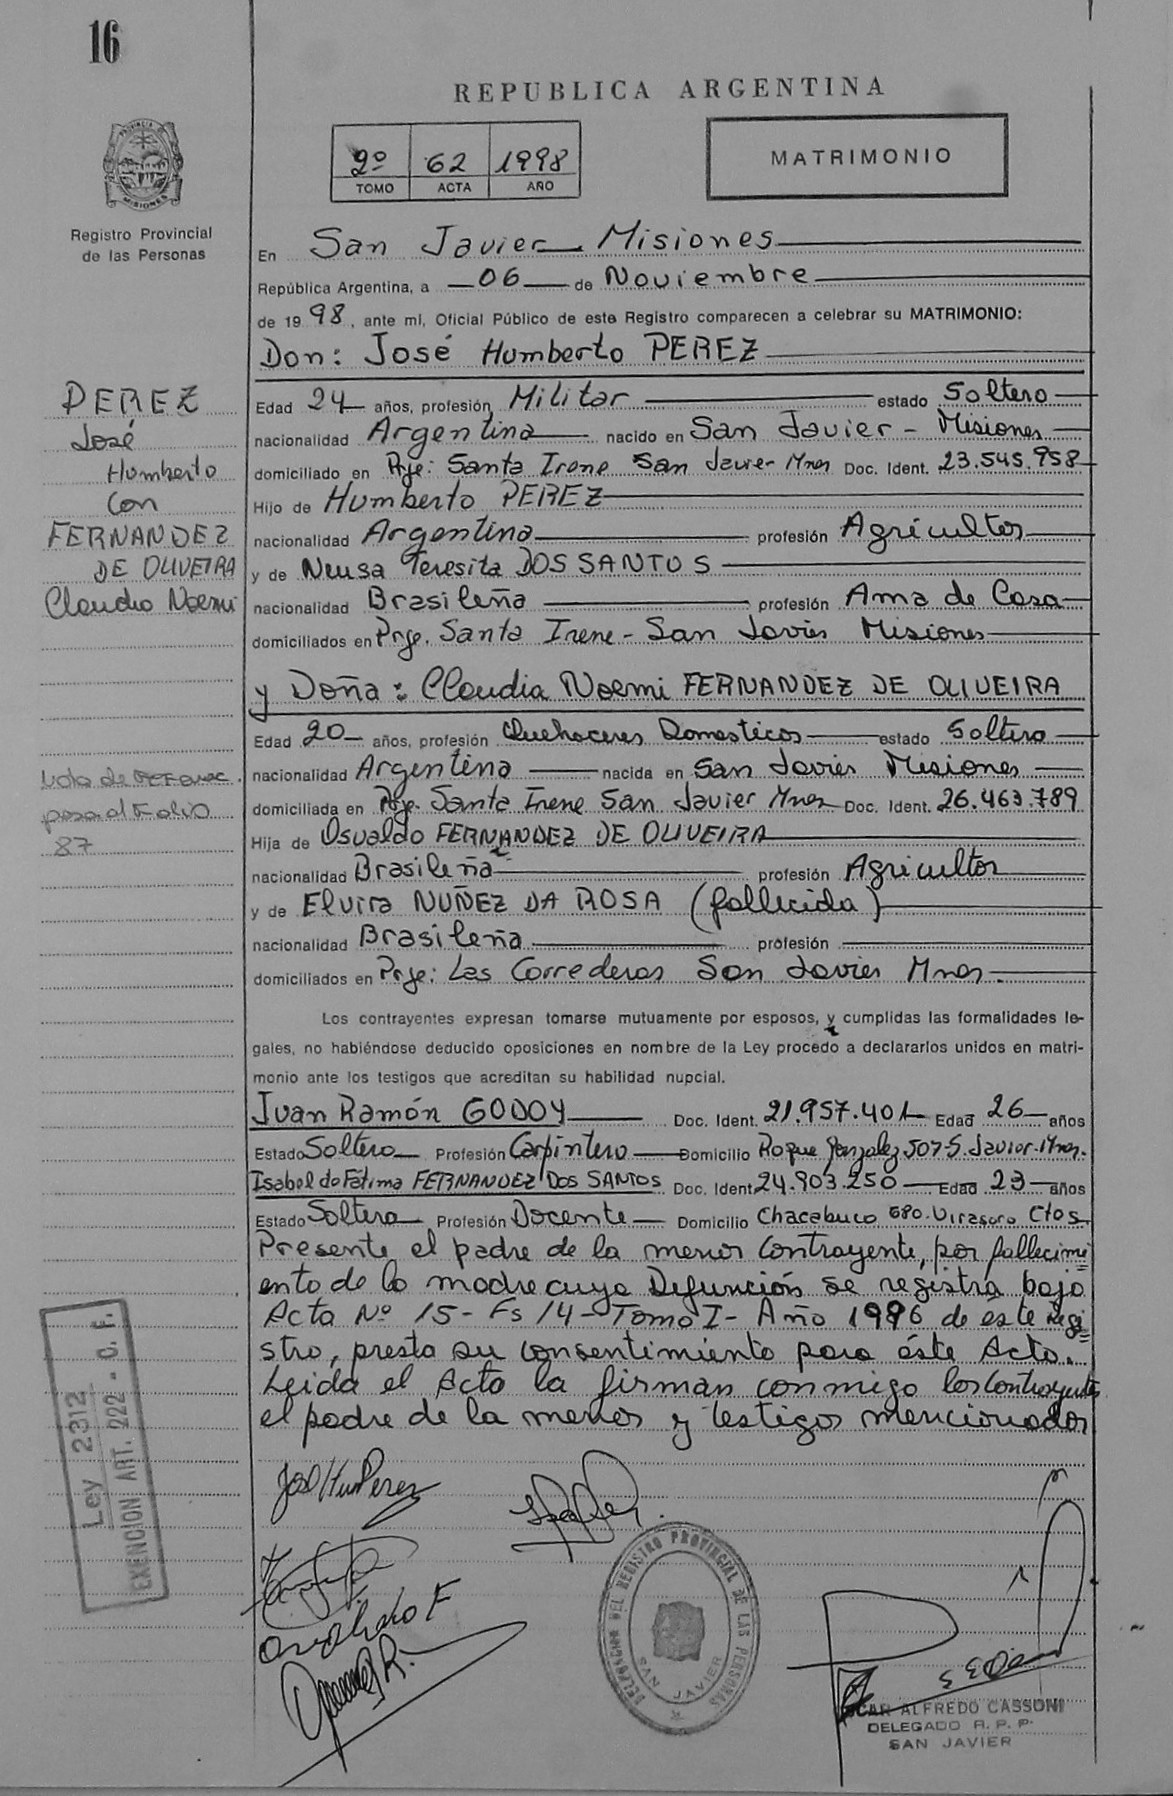 16
REPUBLICA ARGENTINA
PROVINCIA DE
MISIONES
Registro Provincial
de las Personas
2º 62 1998
TOMO ACTA AÑO
MATRIMONIO
En San Javier Misiones
República Argentina, a 06 de Noviembre
de 1998, ante mí, Oficial Público de este Registro comparecen a celebrar su MATRIMONIO:
Don: José Humberto PEREZ
Edad 24 años, profesión Militar estado Soltero
nacionalidad Argentina nacido en San Javier - Misiones
domiciliado en Pje: Santa Irene San Javier Mnes Doc. Ident. 23.545.958
Hijo de Humberto PEREZ
nacionalidad Argentina profesión Agricultor
y de Neusa Teresita DOS SANTOS
nacionalidad Brasileña profesión Ama de Casa
domiciliados en Prje. Santa Irene - San Javier Misiones
y Doña: Claudia Noemi FERNANDEZ DE OLIVEIRA
Edad 20 años, profesión Quehaceres Domesticos estado Soltera
nacionalidad Argentina nacida en San Javier Misiones
domiciliada en Pje. Santa Irene San Javier Mnes Doc. Ident. 26.463.789
Hija de Osvaldo FERNANDEZ DE OLIVEIRA
nacionalidad Brasileña profesión Agricultor
y de Elvira NUÑEZ DA ROSA (fallecida)
nacionalidad Brasileña profesión
domiciliados en Prje: Las Correderas San Javier Mnes.
Los contrayentes expresan tomarse mutuamente por esposos, y cumplidas las formalidades le-
gales, no habiéndose deducido oposiciones en nombre de la Ley procedo a declararlos unidos en matri-
monio ante los testigos que acreditan su habilidad nupcial.
Juan Ramón GODOY Doc. Ident. 21.957.401 Edad 26 años
Estado Soltero Profesión Carpintero Domicilio Roque Gonzalez 507-S. Javier-Mnes.
Isabel do Fátima FERNANDEZ DOS SANTOS Doc. Ident. 24.903.250 Edad 23 años
Estado Soltera Profesión Docente Domicilio Chacabuco 680. Virasoro Ctes.
Presente el padre de la menor contrayente, por fallecimi
ento de la madre cuya Defunción se registra bajo
Acta Nº 15 - Fs 14 - Tomo I - Año 1996 de este Regi
stro, presta su consentimiento para éste Acto.
Leida el Acta la firman conmigo los contrayentes
el padre de la menor y testigos mencionados
PEREZ
José
Humberto
Con
FERNANDEZ
DE OLIVEIRA
Claudia Noemi
pasa al Folio
87
Ley 2312
EXENCION ART. 222 - C. F.
José Hum Perez
DELEGACION DEL REGISTRO PROVINCIAL DE LAS PERSONAS
SAN JAVIER
OSCAR ALFREDO CASSONI
DELEGADO R. P. P.
SAN JAVIER